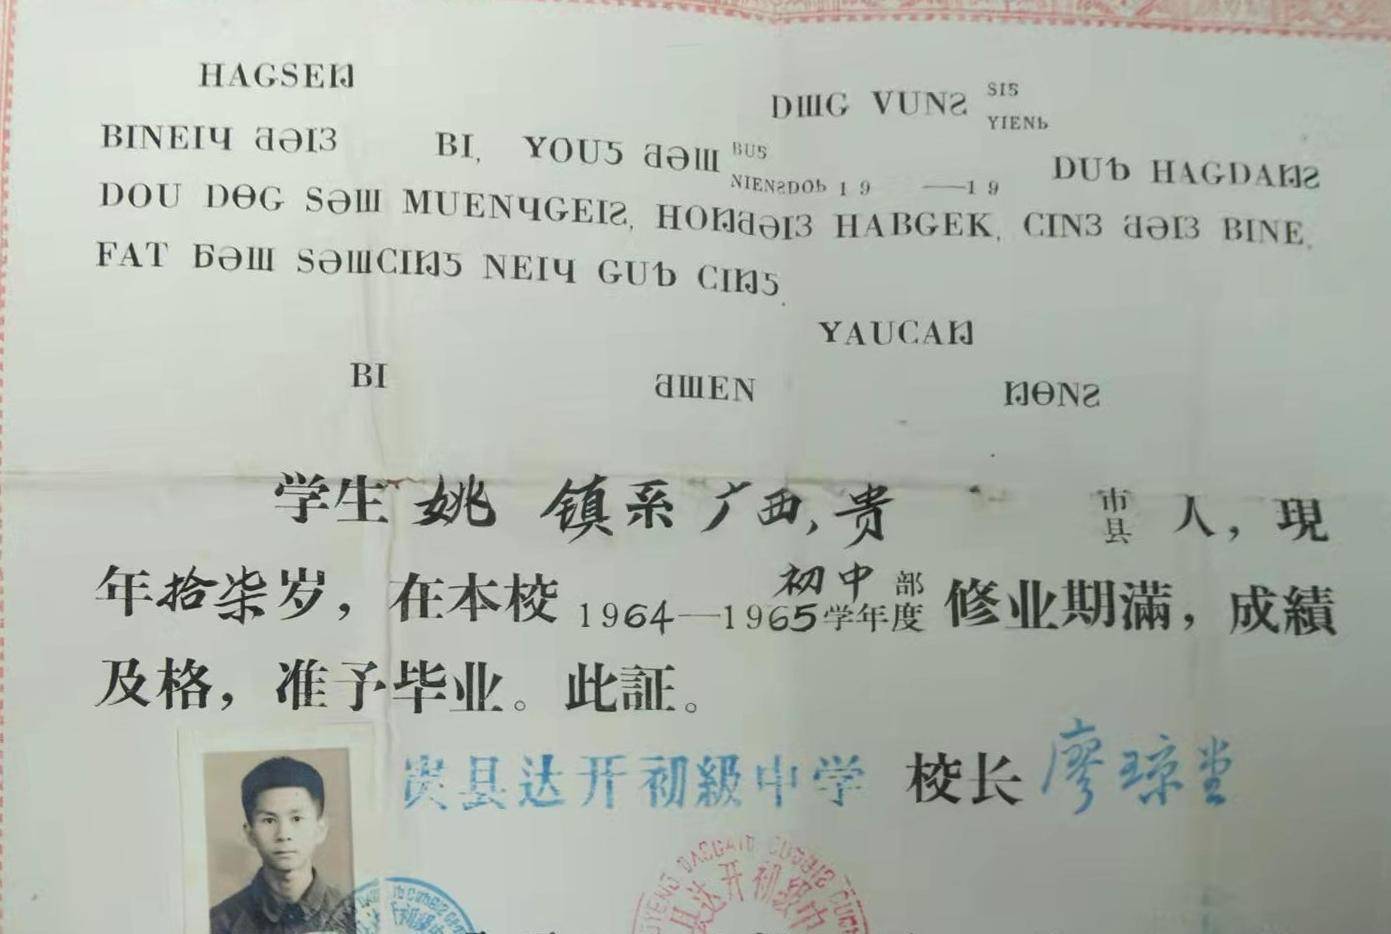 HAGSEŊ DƜG VUNƧ SIƼ
YIENƄ
BINEIЧ ƋƏIЗ BI, YOUƼ ƋƏƜ BUƼ
NIENƧDOƄ 19 —19 DUƄ HAGDAŊƧ
DOU DƟG SƏƜ MUENЧGEIƧ, HOŊƋƏIЗ HABGEK, CINЗ ƋƏIЗ BINE.
FAT ƂƏƜ SƏƜCIŊƼ NEIЧ GUƄ CIŊƼ.
YAUCAŊ
BI ƋƜEN ŊƟNƧ
学生姚 镇系广西,贵 市
县 人，現
年拾柒岁，在本校 初中部
1964—1965学年度 修业期滿，成績
及格，准予毕业。此証。
贵县达开初級中学 校长 廖琼堂
县达开初級中